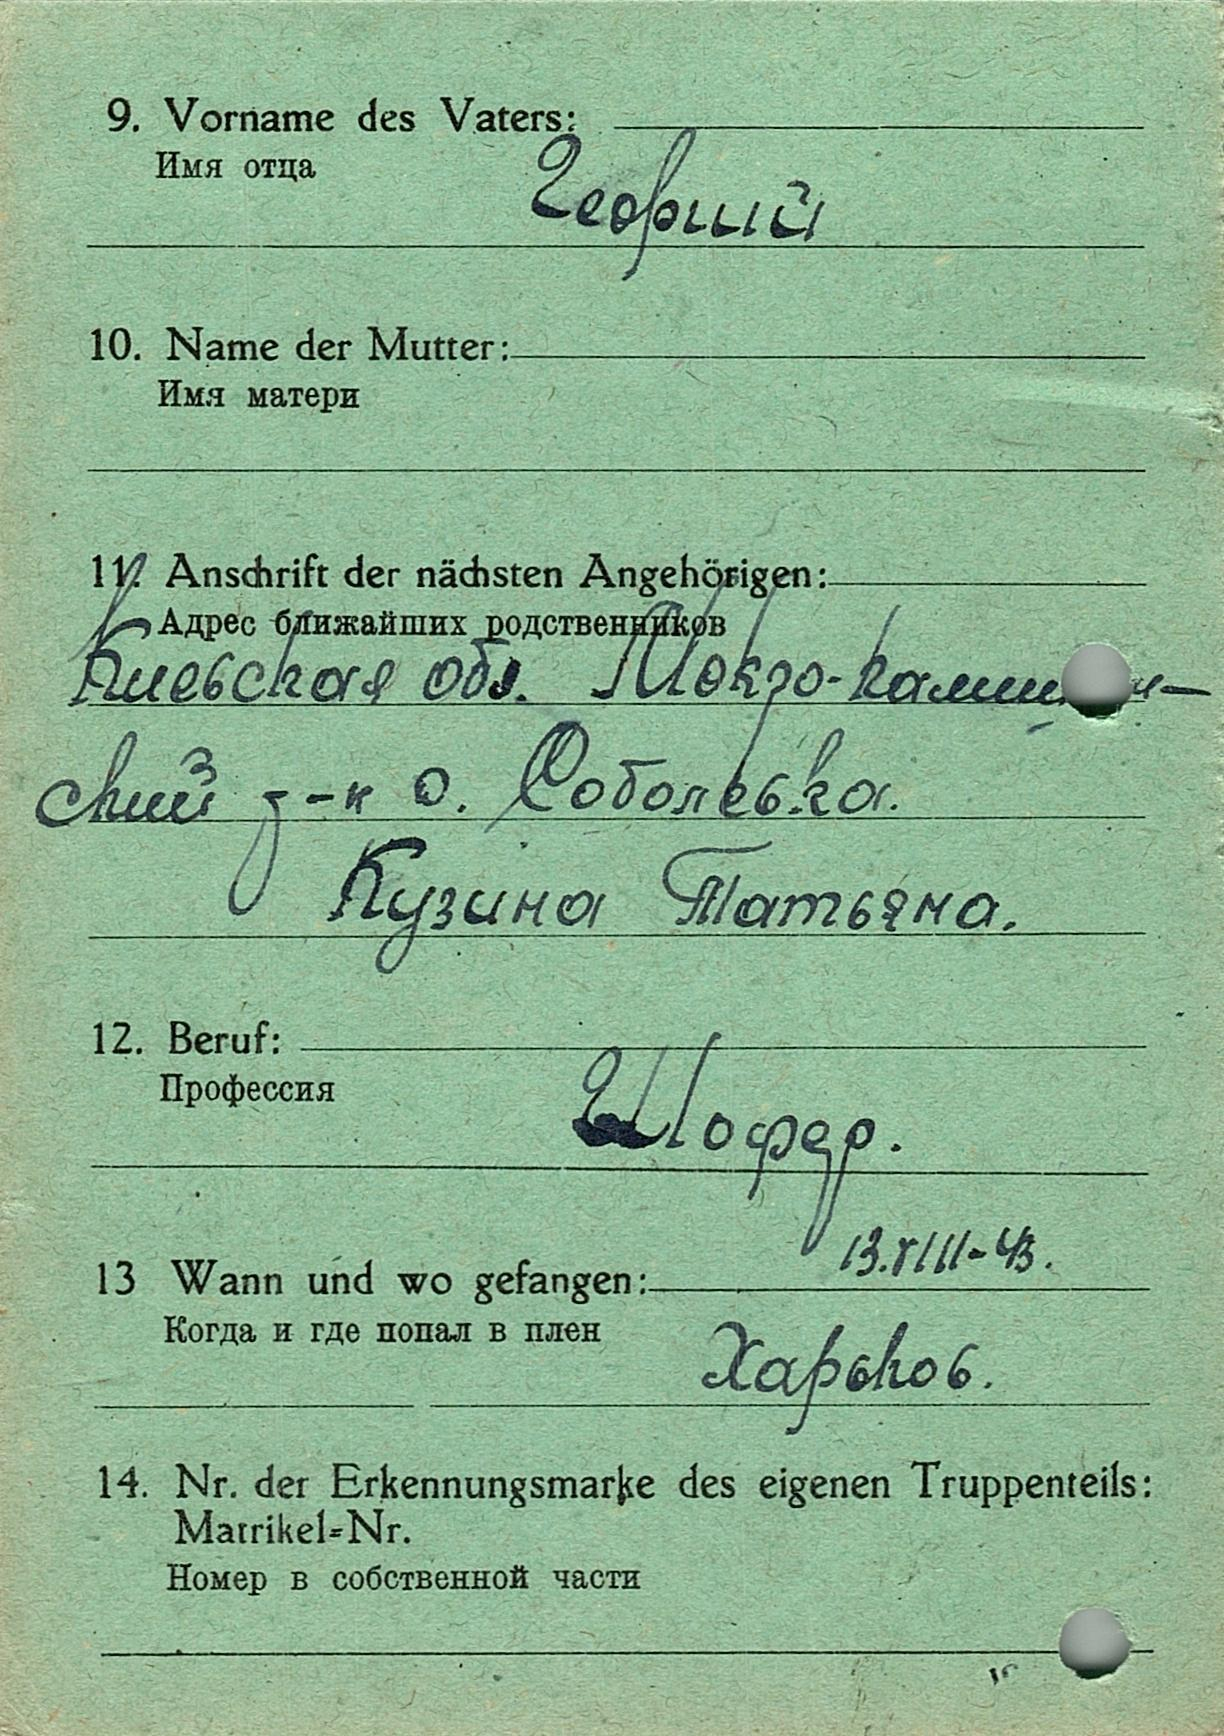 9. Vorname des Vaters:
Имя отца
Георгий
10. Name der Mutter:
Имя матери
11. Anschrift der nächsten Angehörigen:
Адрес ближайших родственников
Киевская обл. Мокро-
ский р-н с. Соболевка.
Кузина Татьяна.
12. Beruf:
Профессия
Шофер.
13.VIII-43.
13 Wann und wo gefangen:
Когда и где попал в плен
Харьков.
14. Nr. der Erkennungsmarke des eigenen Truppenteils:
Matrikel=Nr.
Номер в собственной части